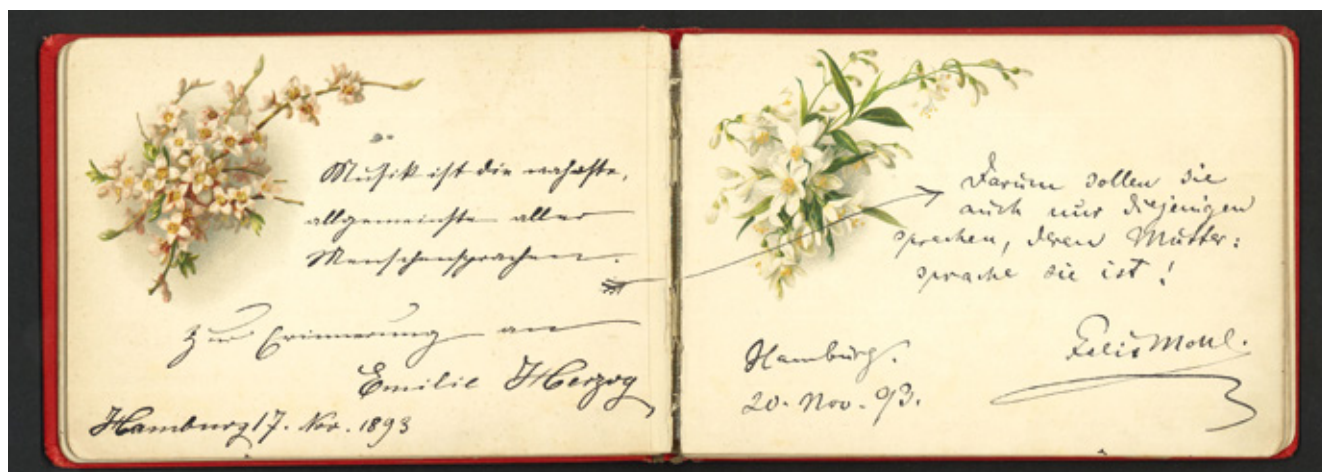 Musik ist die wahrste,
allgemeinste aller
Menschensprachen.
Zur Erinnerung an
Emilie Herzog
Hamburg 17. Nov. 1893
Darum sollen sie
auch nur diejenigen
sprechen, deren Mutter:
sprache sie ist!
Felix Mottl.
Hamburg.
20. Nov. 93.